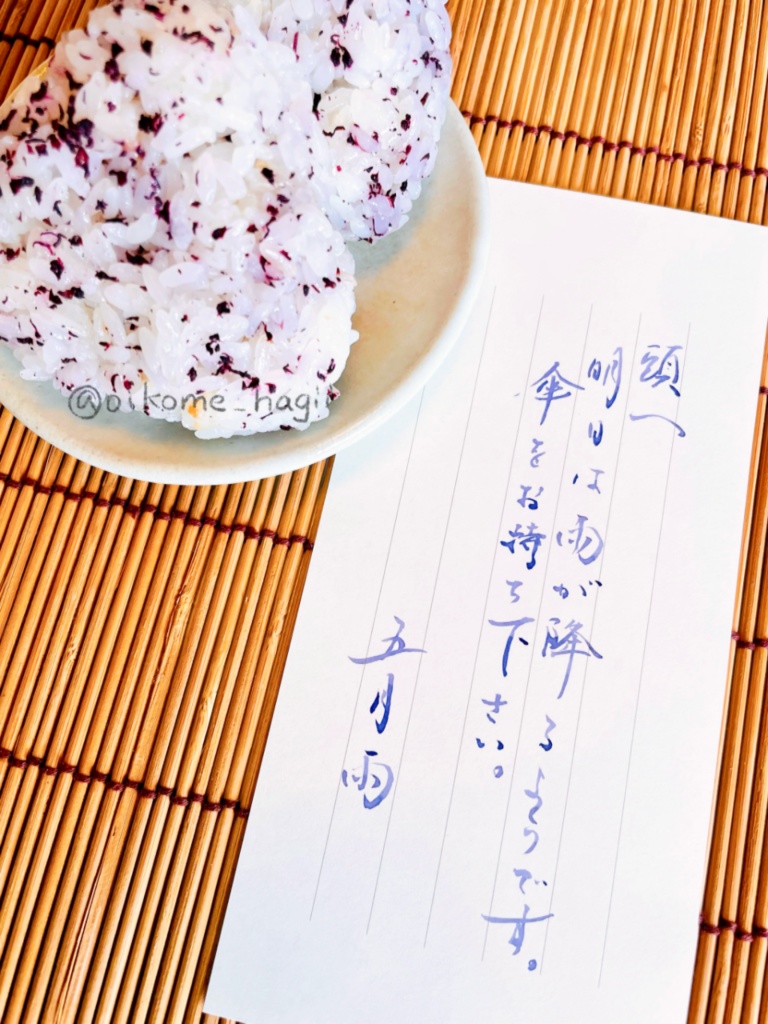 頭へ
明日は雨が降るようです。
傘をお持ち下さい。
五月雨
@oikome_hagi